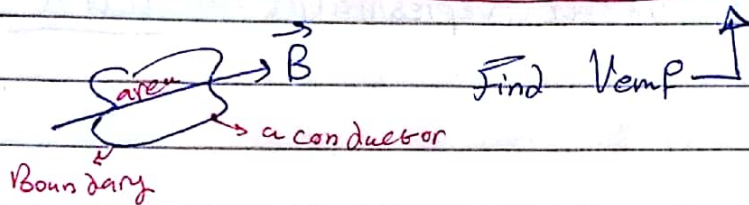 B
area
Find Vemf
a conductor
Boundary